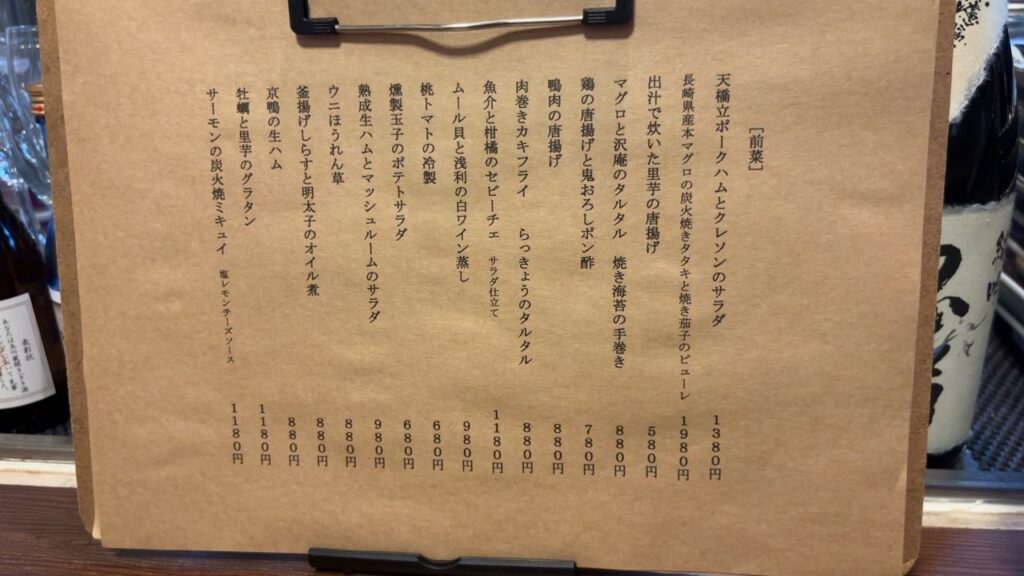 ［前菜］
天橋立ポークハムとクレソンのサラダ 1380円
長崎県産本マグロの炭火焼きタタキと焼き茄子のピューレ 1980円
出汁で炊いた里芋の唐揚げ 580円
マグロと沢庵のタルタル 焼き海苔の手巻き 880円
鶏の唐揚げと鬼おろしポン酢 780円
鴨肉の唐揚げ 880円
肉巻きカキフライ らっきょうのタルタル 880円
魚介と柑橘のセビーチェ サラダ仕立て 1180円
ムール貝と浅利の白ワイン蒸し 980円
桃トマトの冷製 680円
燻製玉子のポテトサラダ 680円
熟成生ハムとマッシュルームのサラダ 980円
ウニほうれん草 880円
釜揚げしらすと明太子のオイル煮 880円
京鴨の生ハム 880円
牡蠣と里芋のグラタン 1180円
サーモンの炭火焼ミキュイ 塩レモンチーズソース 1180円
表彰状